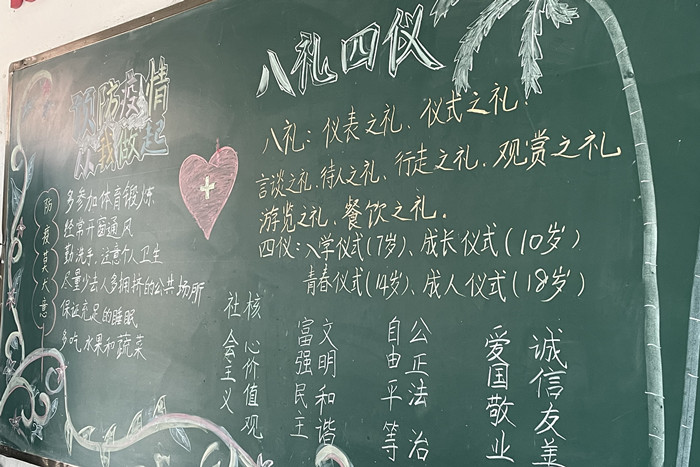 预防疫情
从我做起
防疫莫大意
多参加体育锻炼
经常开窗通风
勤洗手.注意个人卫生
尽量少去人多拥挤的公共场所
保证充足的睡眠
多吃水果和蔬菜
八礼四仪
八礼：仪表之礼、仪式之礼.
言谈之礼.待人之礼、行走之礼、观赏之礼
游览之礼、餐饮之礼.
四仪：入学仪式(7岁)、成长仪式(10岁)
青春仪式(14岁)、成人仪式(18岁)
社会主义
核心价值观
富强民主
文明和谐
自由平等
公正法治
爱国敬业
诚信友善